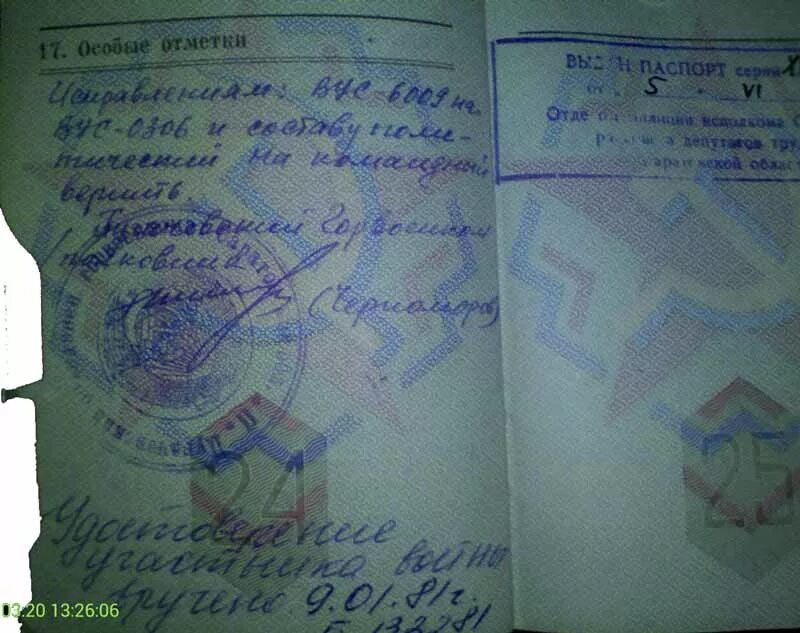 17. Особые отметки
Исправлениям: ВУС-6009 на
ВУС-0306 и составу поли-
тический на командный
верить.
Горвоенком
полковник
(Черноморов)
24
Удостоверение
участника войны
вручено 9.01.81г.
132281
ПАСПОРТ серии X
от 5 VI
исполкома
депутатов тру
области
25
03:20 13:26:06